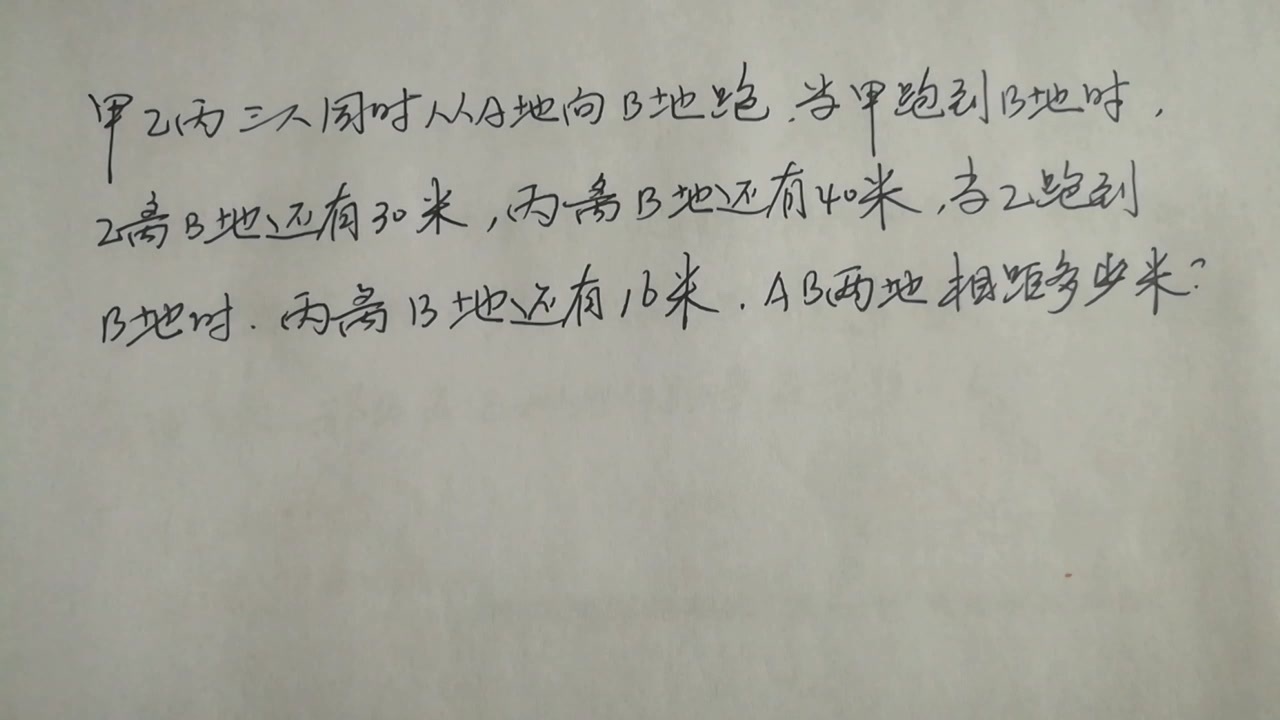 甲乙丙三人同时从A地向B地跑.当甲跑到B地时,
乙离B地还有30米,丙离B地还有40米,当乙跑到
B地时.丙离B地还有16米.AB两地相距多少米?